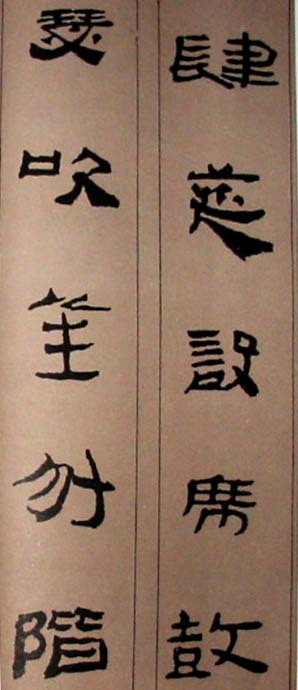 肆筵設席鼓
瑟吹笙升階